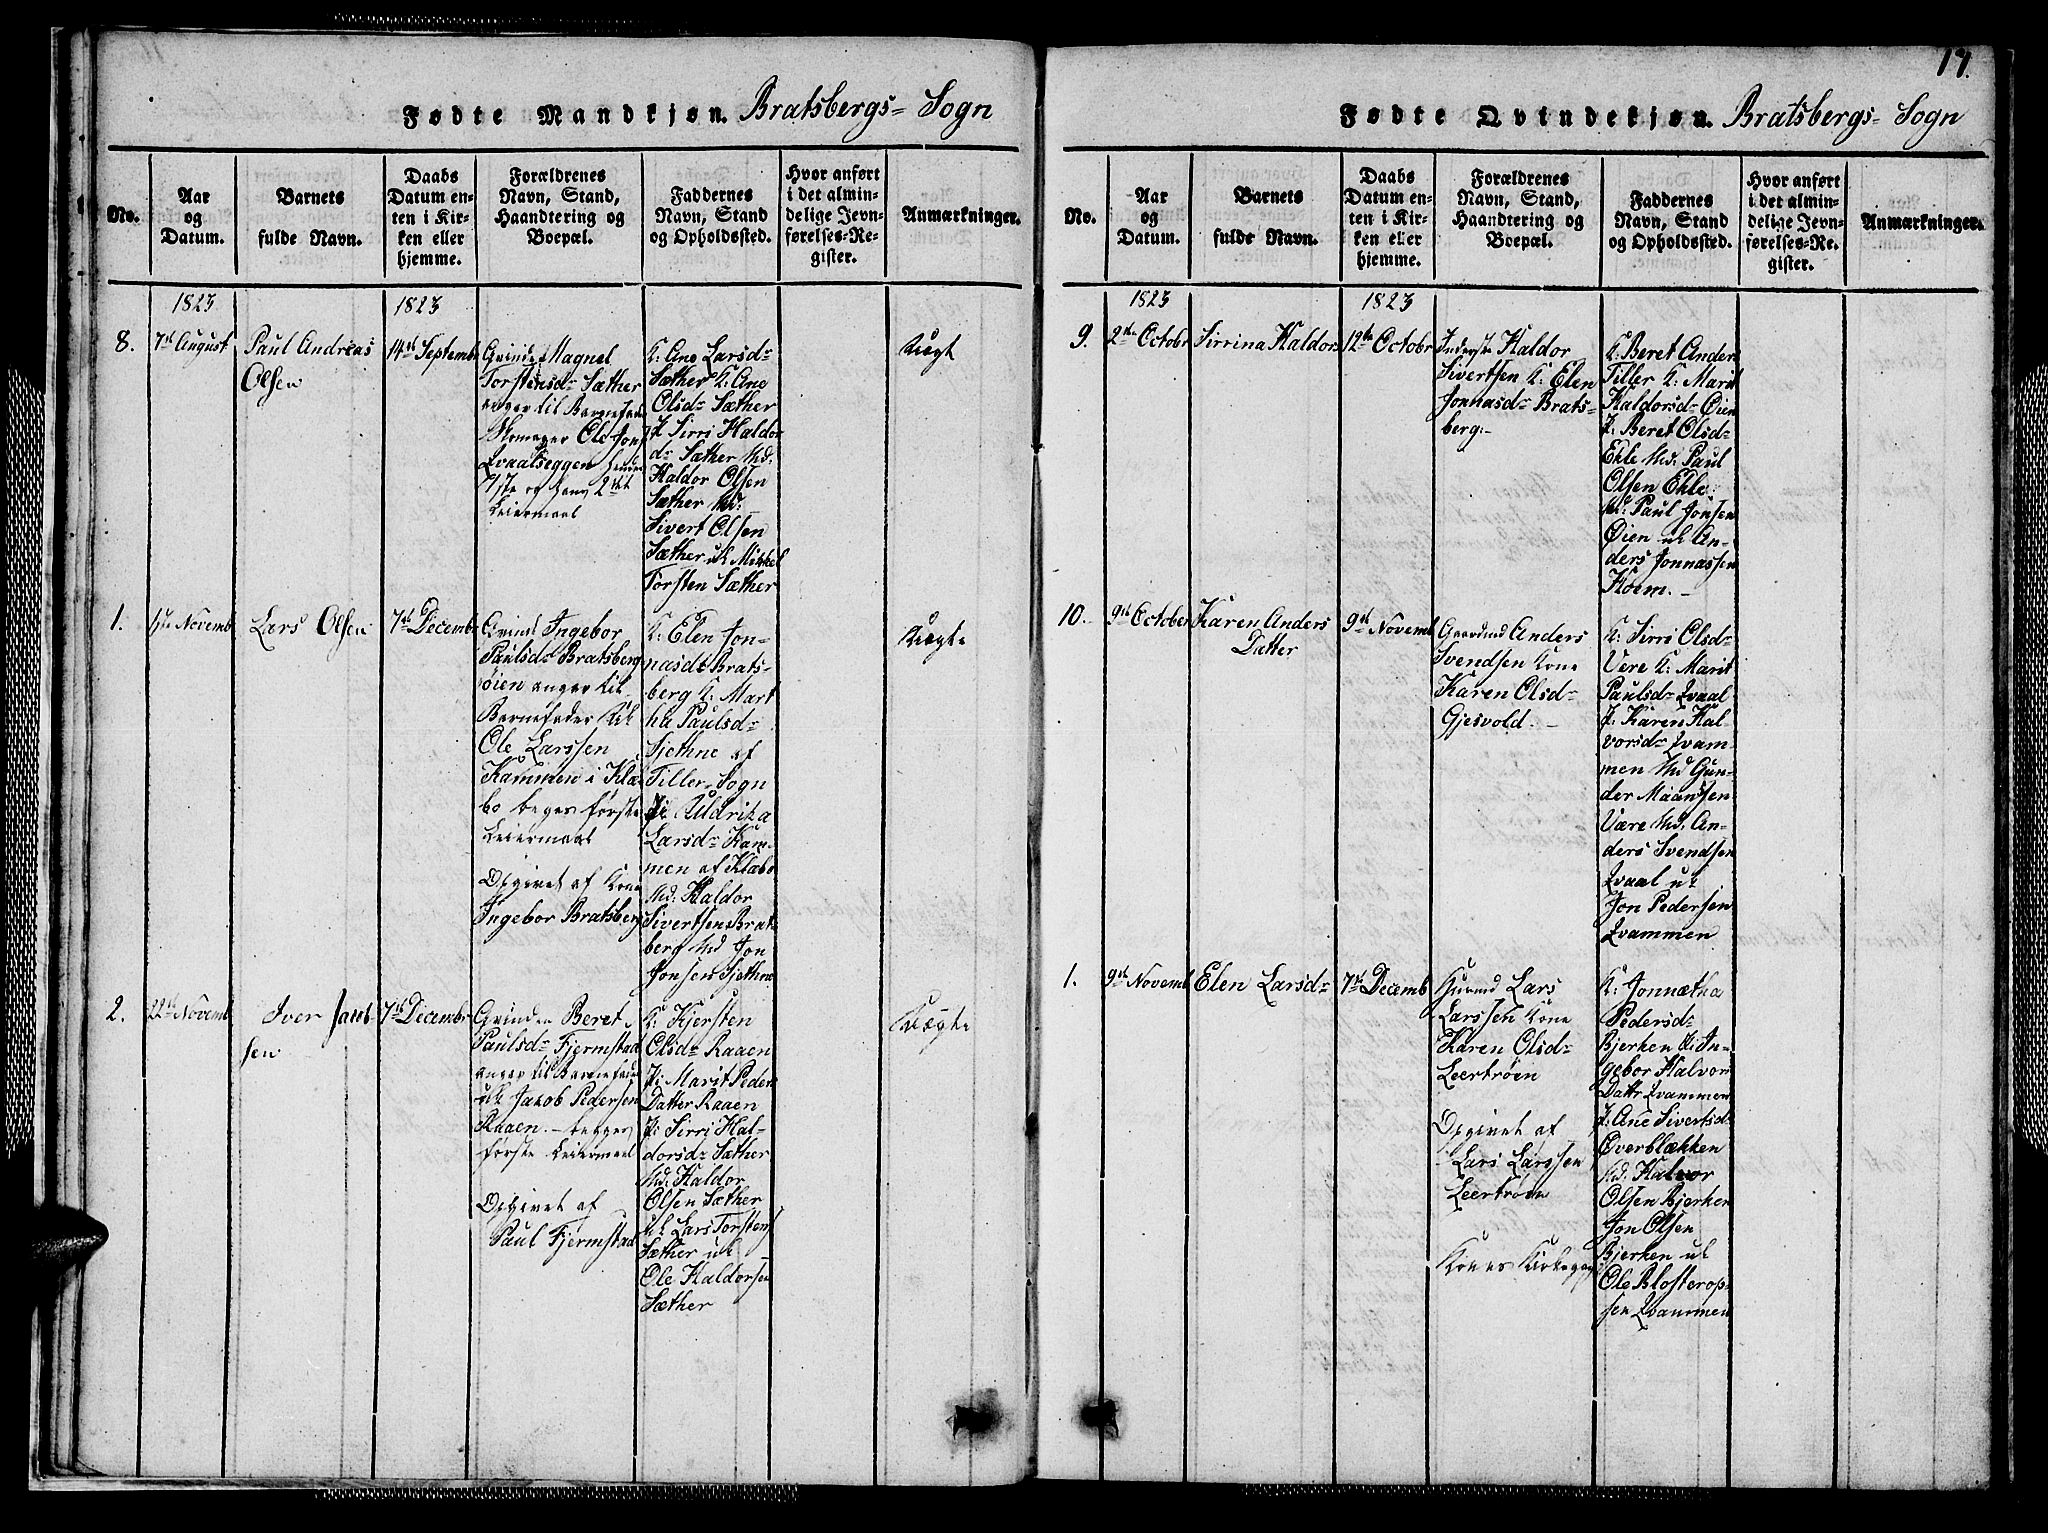 Fødte Mandkjøn. Bratsbergs= Sogn
No.
Aar
og
Datum.
Barnets
fulde Navn.
Daabs
Datum en-
ten i Kir-
ken eller
hjemme.
Forældrenes
Navn, Stand,
Haandtering og
Boepæl.
Faddernes
Navn, Stand
og Opholdssted.
Hvor anført
i det almin-
delige Jevn-
førelses-Re-
gister.
Anmærkninger.
1823
1823
8.
7de August
Paul Andreas
Olsen
14de Septembr
Qvinden Magnel
Torstensd= Sæther
angav til Barnefader
Skomager Ole Jons
Qvaalseggen hendes
1ste og hans 2det
Leiermaal
K: Ane Larsd=
Sæther K: Ane
Olsd= Sæther
P. Sirri Haldor
d= Sæther Md:
Haldor Olsen
Sæther Md:
Sivert Olsen
Sæther uk Mikkel
Torsten Sæther
1.
1ste Novemb
Lars Olsen
7de Decembr
Qvind Ingebor
Paulsd= Bratsberg
øien angav til
Barnefader uk
Ole Larssen
Kammen i Klæ
bo begges første
Leiermaal
Opgivet af Kone
Ingebor Bratsberg
K: Elen Jon-
nasd= Brats-
berg K: Mart
ha Paulsd=
Sjethne af
Tiller Sogn
P: Uldrika
Larsd= Kam-
men af Klæbo
Md: Haldor
Sivertsen Brat-
berg Md Jon
Jonsen Sjethne
2.
22de Novemb
Iver Jacob-
sen
7de Decembr
Qvinden Beret
Paulsd= Fjermstad
angav til Barnefader
uk Jakob Pedersen
Raaen.- begges
første Leiermaal
Opgivet af
Paul Fjermstad
K: Kjersten
Olsd= Raaen
P: Marit Peder
Datter Raaen
P: Sirri Hal-
dorsd= Sæther
Md: Haldor
Olsen Sæther
uk Lars Torstens
Sæther uk
Ole Haldorsen
Sæther
17.
Fødte Qvindekjøn. Bratsbergs= Sogn
No.
Aar
og
Datum.
Barnets
fulde Navn.
Daabs
Datum en-
ten i Kir-
ken eller
hjemme.
Forældrenes
Navn, Stand,
Haandtering og
Boepæl.
Faddernes
Navn, Stand
og Opholdssted.
Hvor anført
i det almin-
delige Jevn-
førelses-Re-
gister.
Anmærkninger.
1823
1823
9.
2den Octobr
Sirrina Haldors
12te Octobr
Inderste Haldor
Sivertsen K: Elen
Jonnasd= Brats-
berg.-
K: Beret Anders
Tiller K: Marit
Haldorsd= Øien
P: Beret Olsd=
Ekle Md: Paul
Olsen Ekle
Md: Paul Jonsen
Øien uk An-
ders Jonnassen
Hoem.-
10.
9de October
Karen Anders
Datter
9de Novemb
Gaardmd Anders
Svendsen Kone
Karen Olsd=
Gjesvold.-
K: Sirri Olsd=
Vere K: Marit
Paulsd= Qvaal
P: Karen Hal-
vorsd= Qvam-
men Md Gun-
der Maanssen
Være Md: An-
ders Svendsen
Qvaal uk
Jon Pedersen
Qvammen
1.
9de Novemb
Elen Larsd=
7de Decemb
Huusmd Lars
Larssen Kone
Karen Olsd=
Leertrøen
Opgivet af
Lars Larssen
Leertrøen
Kones Kirkegang
K: Jonnætna
Pedersd=
Bjerken K: In-
gebor Halvor
Dattr Qvammen
P: Ane Sivertsd=
Øverblækken
Md: Halvor
Olsen Bjerken
Jon Olsen
Bjerken uk
Ole Klosterop-
sen Qvammen